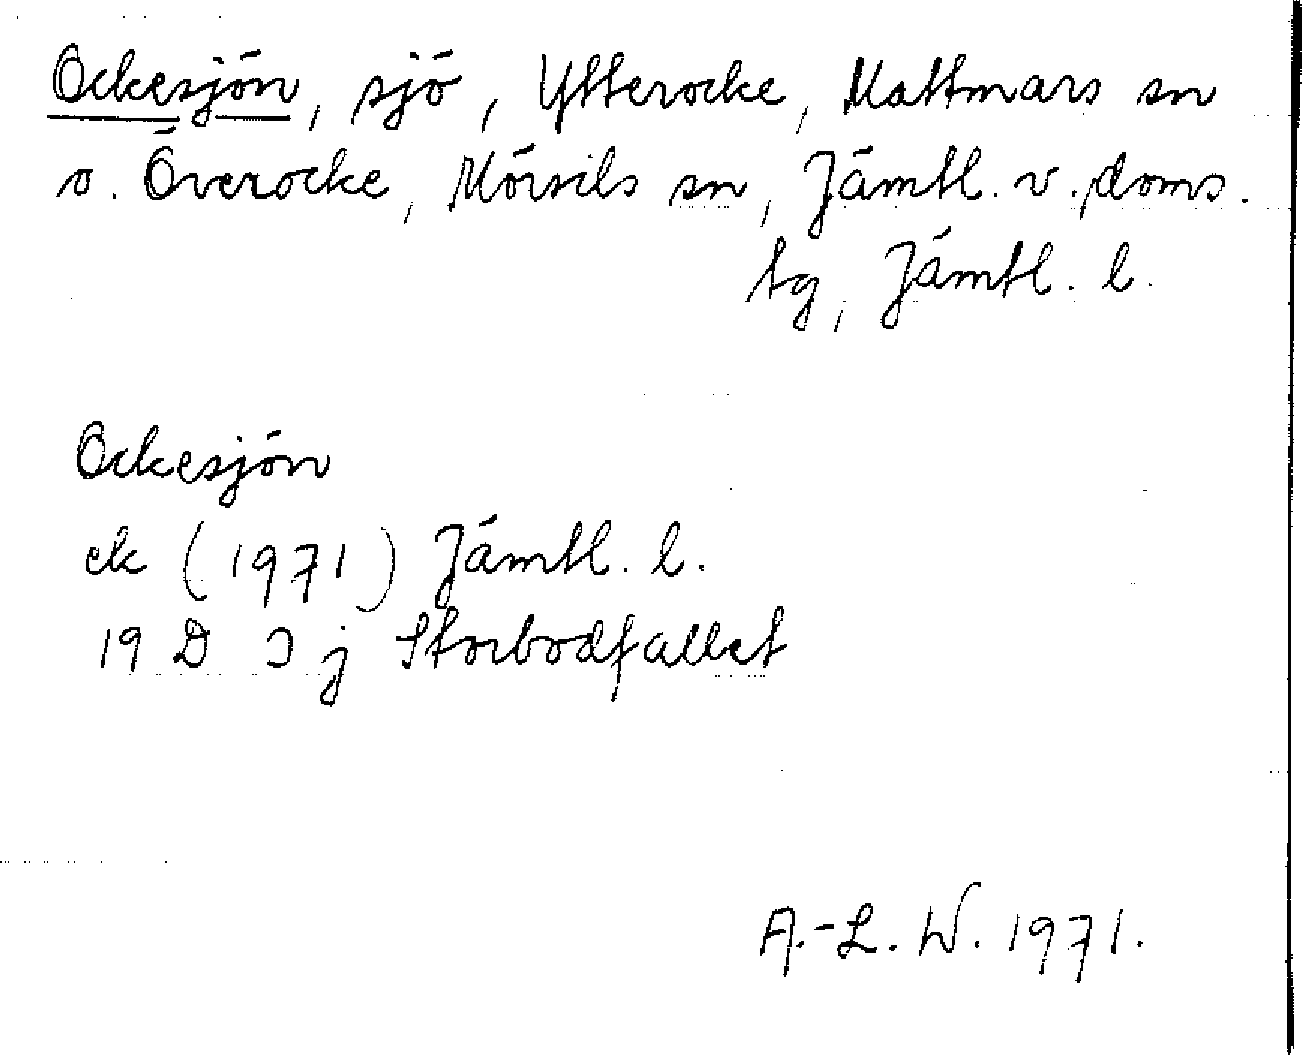 Ockesjön, sjö, Ytterocke, Mattmars sn
o. Överocke, Mörsils sn, Jämtl. v. doms.
tg, Jämtl. l.
Ockesjön
ek (1971) Jämtl. l.
19 D I j Storbodfallet
A.-L. W. 1971.